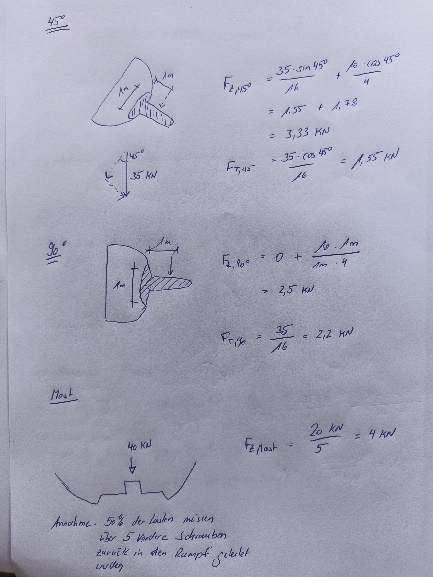 45°
1m 1m
F_Z,45° = 35 · sin 45° / 16 + 10 · cos 45° / 4
= 1,55 + 1,78
= 3,33 KN
45°
35 KN
F_T,45 = 35 · cos 45° / 16 = 1,55 KN
90°
1m
1m
F_Z,90° = 0 + 10 · 1m / 1m · 4
= 2,5 KN
F_T,90 = 35 / 16 = 2,2 KN
Mast
40 KN
F_Z,Mast = 20 KN / 5 = 4 KN
Annahme: 50% der Lasten müssen
über 5 vordere Schrauben
zurück in den Rumpf geleitet
werden